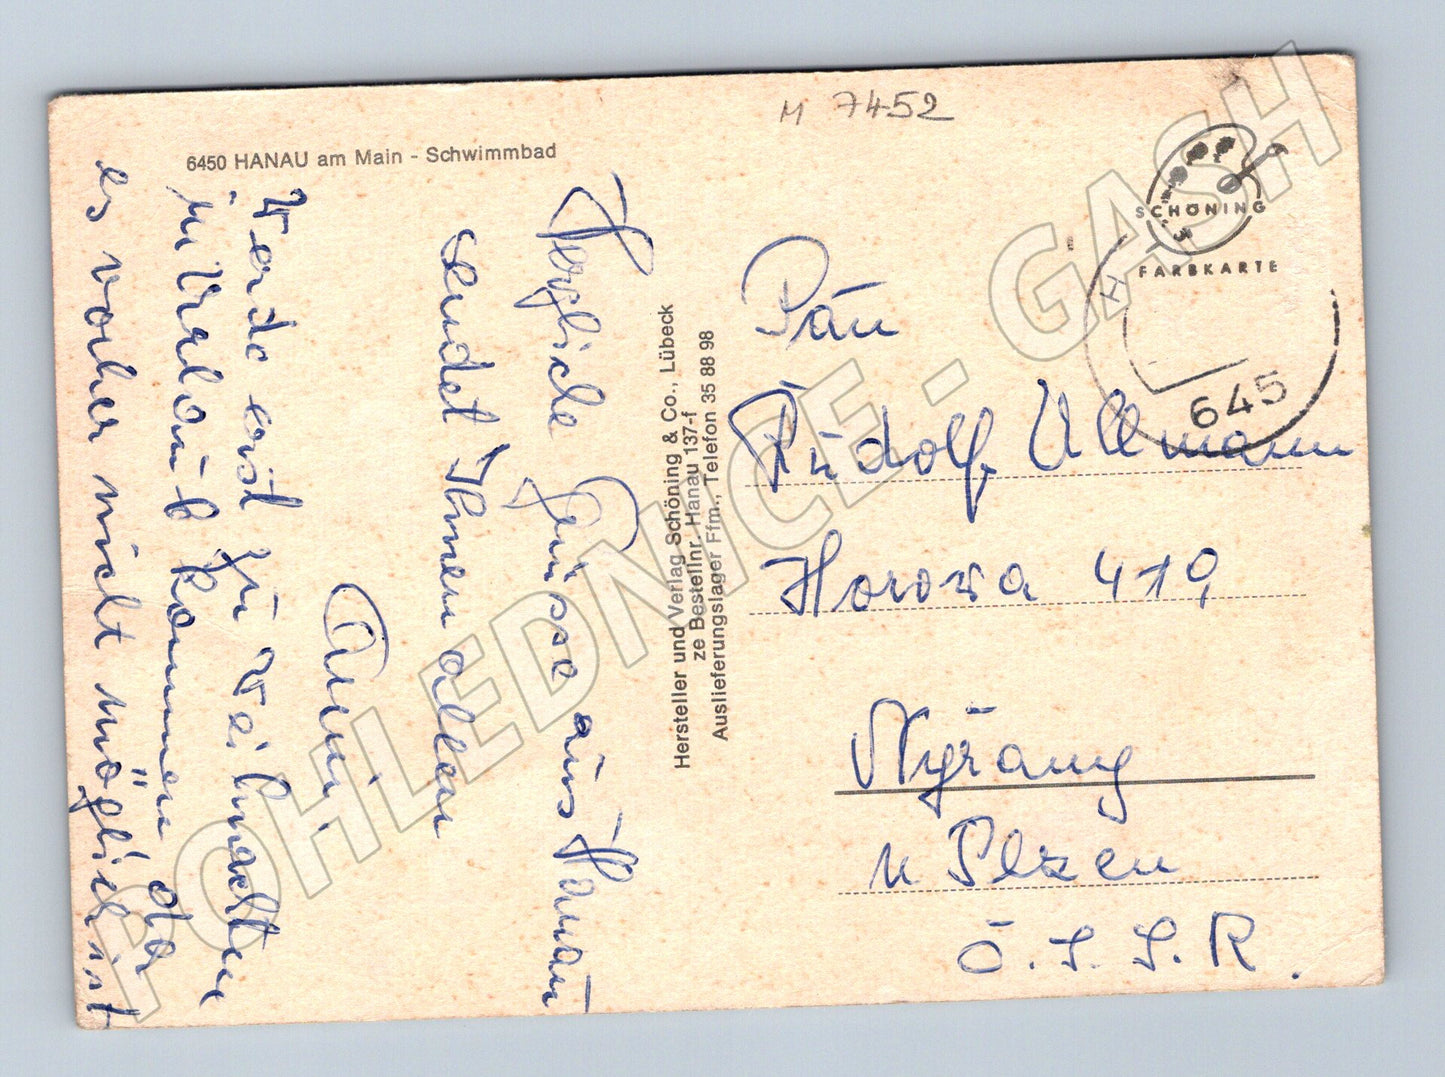 M 7452
6450 HANAU am Main - Schwimmbad
Herzliche Grüsse aus Hanau
sendet Ihnen allen
Anni.
Werde erst zu Weihnachten
in Urlaub kommen da
es vorher nicht möglich ist
Hersteller und Verlag Schöning & Co., Lübeck
ze Bestellnr. Hanau 137-f
Auslieferungslager Ffm., Telefon 35 88 98
SCHÖNING
FARBKARTE
H
645
Pán
Rudolf Ullmann
Horova 419,
Nýřany
u Plzen
Č.S.S.R.
POHLEDNICE - GASH